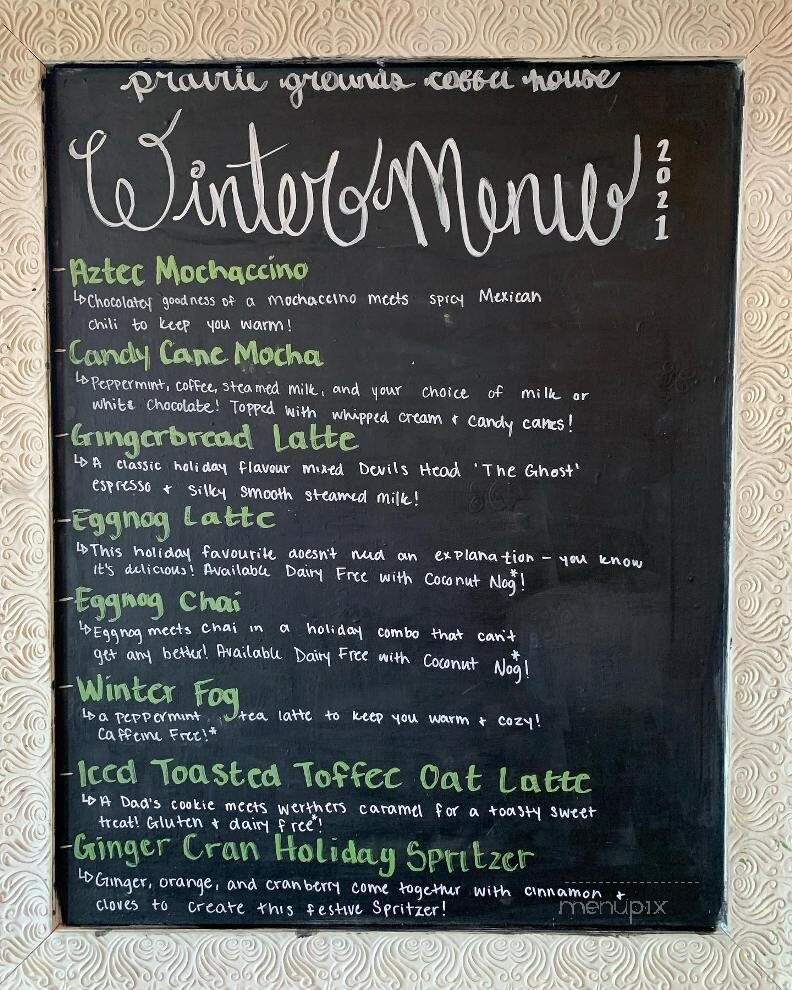 prairie grounds coffee house
Winter Menu
2021
- Aztec Mochaccino
↳ Chocolatey goodness of a mochaccino meets spicy Mexican
chili to keep you warm!
- Candy Cane Mocha
↳ Peppermint, coffee, steamed milk, and your choice of milk or
white chocolate! Topped with whipped cream + candy canes!
- Gingerbread Latte
↳ A classic holiday flavour mixed Devils Head 'The Ghost'
espresso + silky smooth steamed milk!
- Eggnog Latte
↳ This holiday favourite doesn't need an explanation - you know
it's delicious! Available Dairy Free with Coconut Nog*!
- Eggnog Chai
↳ Eggnog meets chai in a holiday combo that can't
get any better! Available Dairy Free with Coconut Nog*!
- Winter Fog
↳ a peppermint tea latte to keep you warm + cozy!
Caffeine Free!*
- Iced Toasted Toffee Oat Latte
↳ A Dad's cookie meets werthers caramel for a toasty sweet
treat! Gluten + dairy free*!
- Ginger Cran Holiday Spritzer
↳ Ginger, orange, and cranberry come together with cinnamon +
cloves to create this festive Spritzer!
menupix